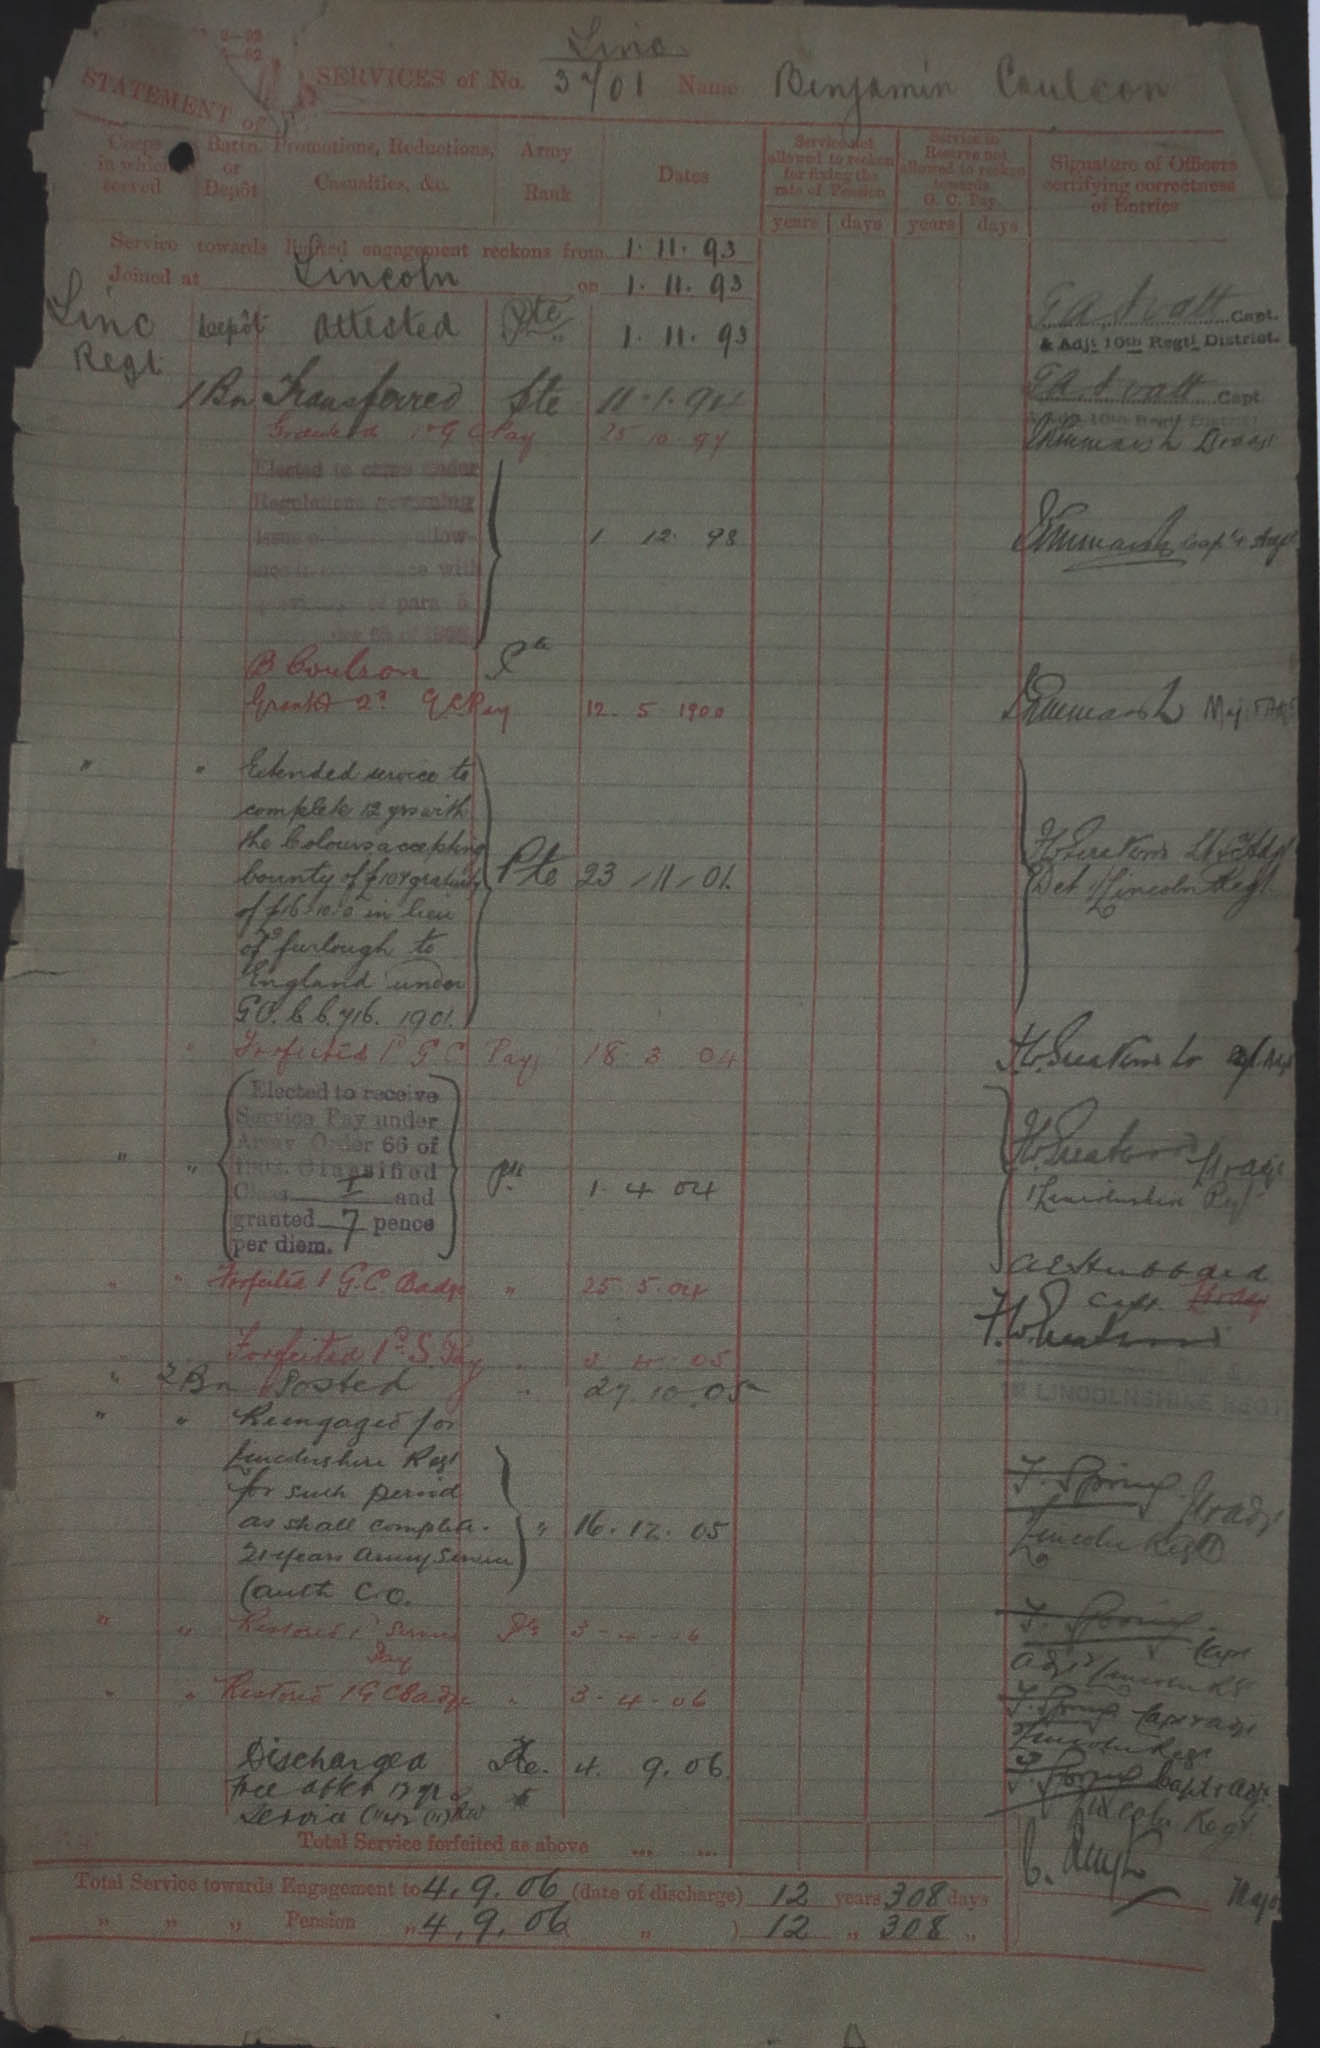 Linc
STATEMENT of SERVICES of No. 3701 Name Benjamin Coulson
Corps in which served
Battn. or Depôt
Promotions, Reductions, Casualties, &c.
Army Rank
Dates
Service not allowed to reckon for fixing the rate of Pension
Service in Reserve not allowed to reckon towards G. C. Pay.
Signature of Officers certifying correctness of Entries
years days years days
Service towards limited engagement reckons from 1. 11. 93
Joined at Lincoln on 1. 11. 93
Linc Depôt Attested Pte 1. 11. 93 Capt.
Regt. & Adjt 10th Regtl District.
1 Bn Transferred Pte 11. 1. 94 Capt
Granted 1st G C Pay 25 10 97
Elected to come under
Regulations governing
1 12. 98
with
para 5
B Coulson Pte
Granted 2d G C Pay 12. 5 1900
" " Extended service to
complete 12 yrs with
the Colours accepting
bounty of £10 & gratuity Pte 23 / 11 / 01. Det 1/Lincoln Regt
of £16-10-0 in lieu
of furlough to
England under
G.O.C.C. 716. 1901.
" Forfeited 1d G C Pay, 18. 3 04
Elected to receive
Service Pay under
Army Order 66 of
Classified
" " Class I and Pte 1. 4 04 1 Lincolnshire Regt
granted 7 pence
per diem.
A E Hubbard
" " Forfeited 1 G.C. Badge " 25. 5. 04 Capt.
Forfeited 1d S. Pay " 3 4 . 05
" 2 Bn Posted " 27. 10. 05 LINCOLNSHIRE REGT
" " Reengaged for
Lincolnshire Regt
for such period F. Spring
as shall complete " 16. 12. 05 Lincoln Regt
21 years Army Service
(auth C.O.
" " Restored 1d Service Pte F. Spring Capt
Pay
" " Restored 1 G C Badge " 3. 4. 06 F. Spring Capt & Adjt
Discharged Pte. 4. 9. 06 F. Spring Capt & Adjt
free after 12 yrs Lincoln Regt
Service
Total Service forfeited as above ... ...
Total Service towards Engagement to 4. 9. 06 (date of discharge) 12 years 308 days
" " " Pension " 4. 9. 06 " ) 12 " 308 " Major